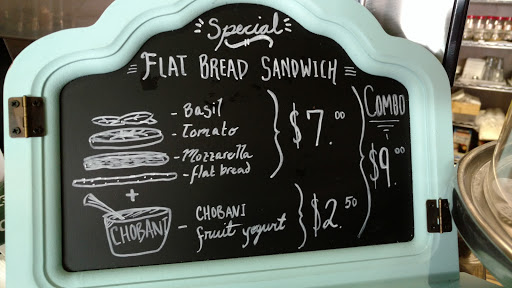 Special
FLAT BREAD SANDWICH
- Basil
- Tomato
- Mozzarella
- flat bread
$7.00
COMBO
$9.00
+
CHOBANI
- CHOBANI
fruit yogurt
$2.50